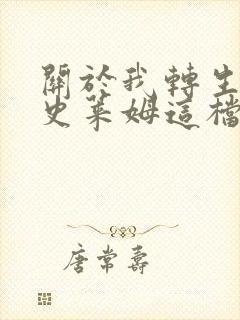 關於我轉生
史萊姆這檔
唐常壽